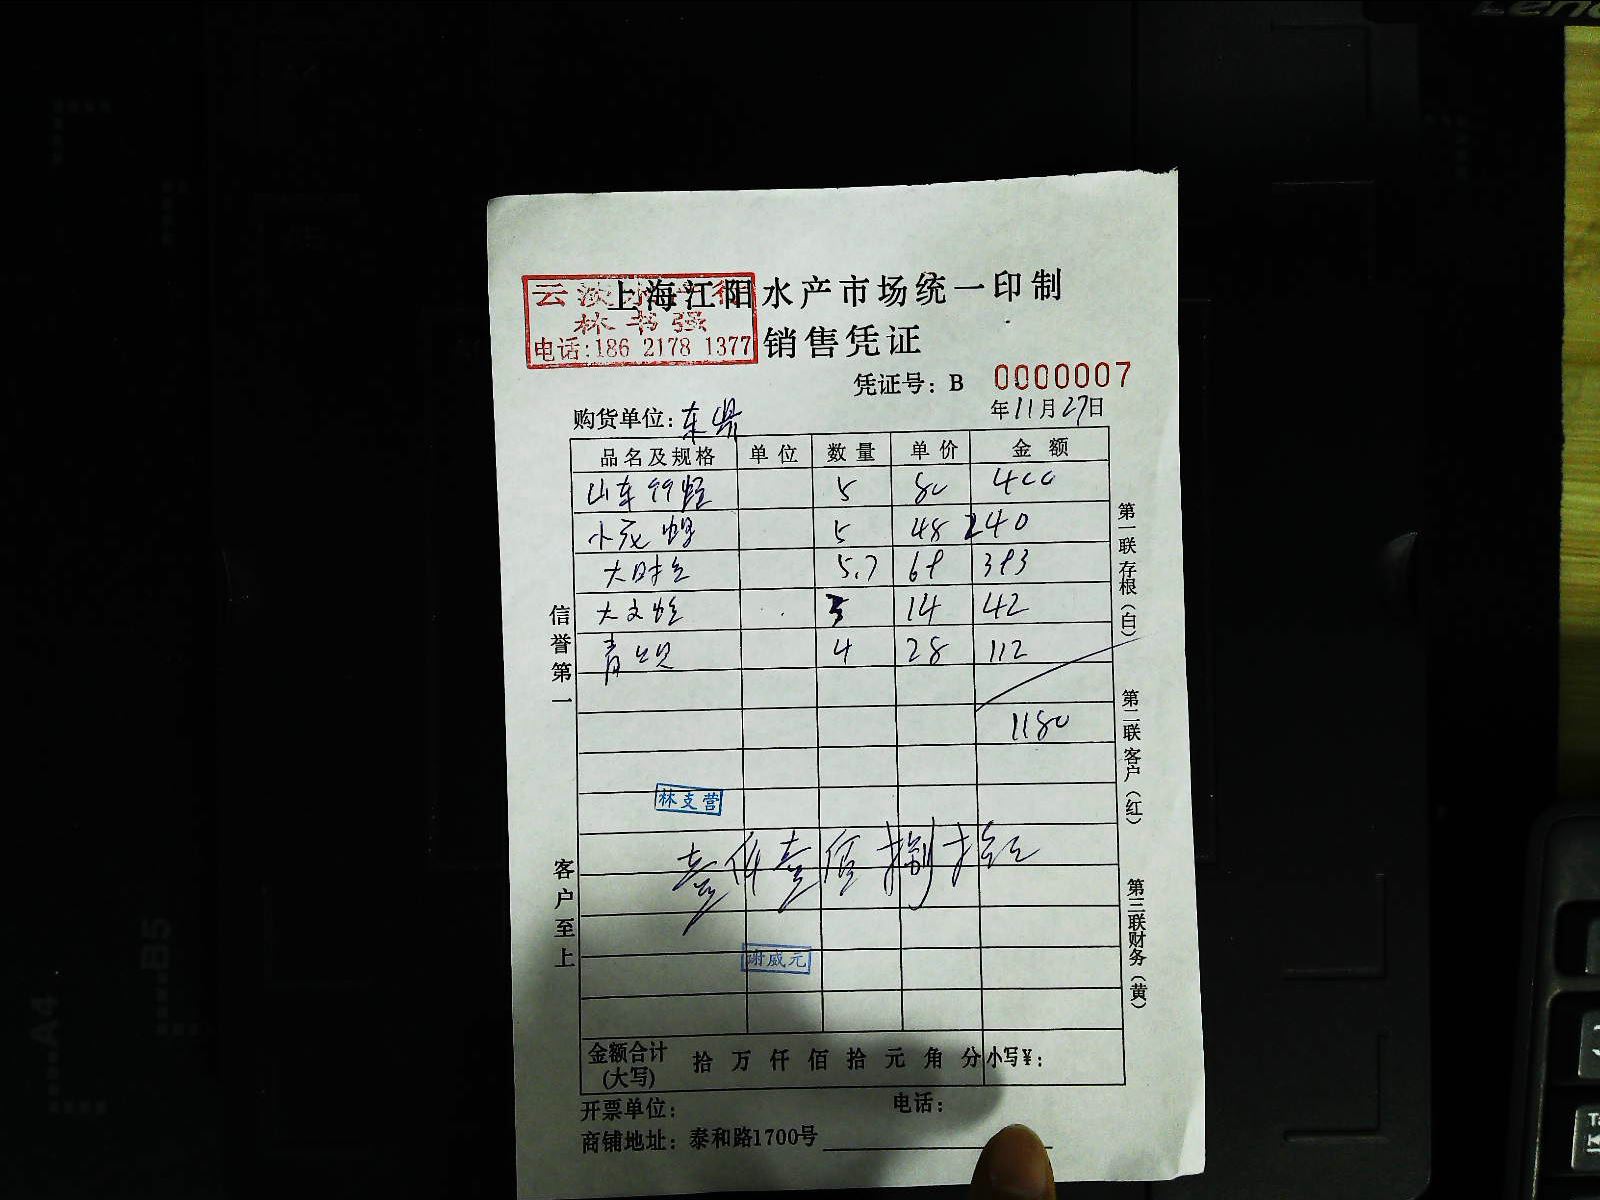 上海江阳水产市场统一印制
云淡水产行
林书强
电话:186 2178 1377
销售凭证
凭证号: B 0000007
年11月27日
购货单位:东
品名及规格 单位 数量 单价 金额
山东 5 80 400
小花 5 48 240
大 5.7 69 393
大文蛤 3 14 42
青 4 28 112
1180
林支营
壹仟壹佰捌拾
谢威元
金额合计(大写) 拾 万 仟 佰 拾 元 角 分 小写¥:
开票单位: 电话:
商铺地址: 泰和路1700号
信誉第一
客户至上
第一联存根(白)
第二联客户(红)
第三联财务(黄)
A4
B5
Leno